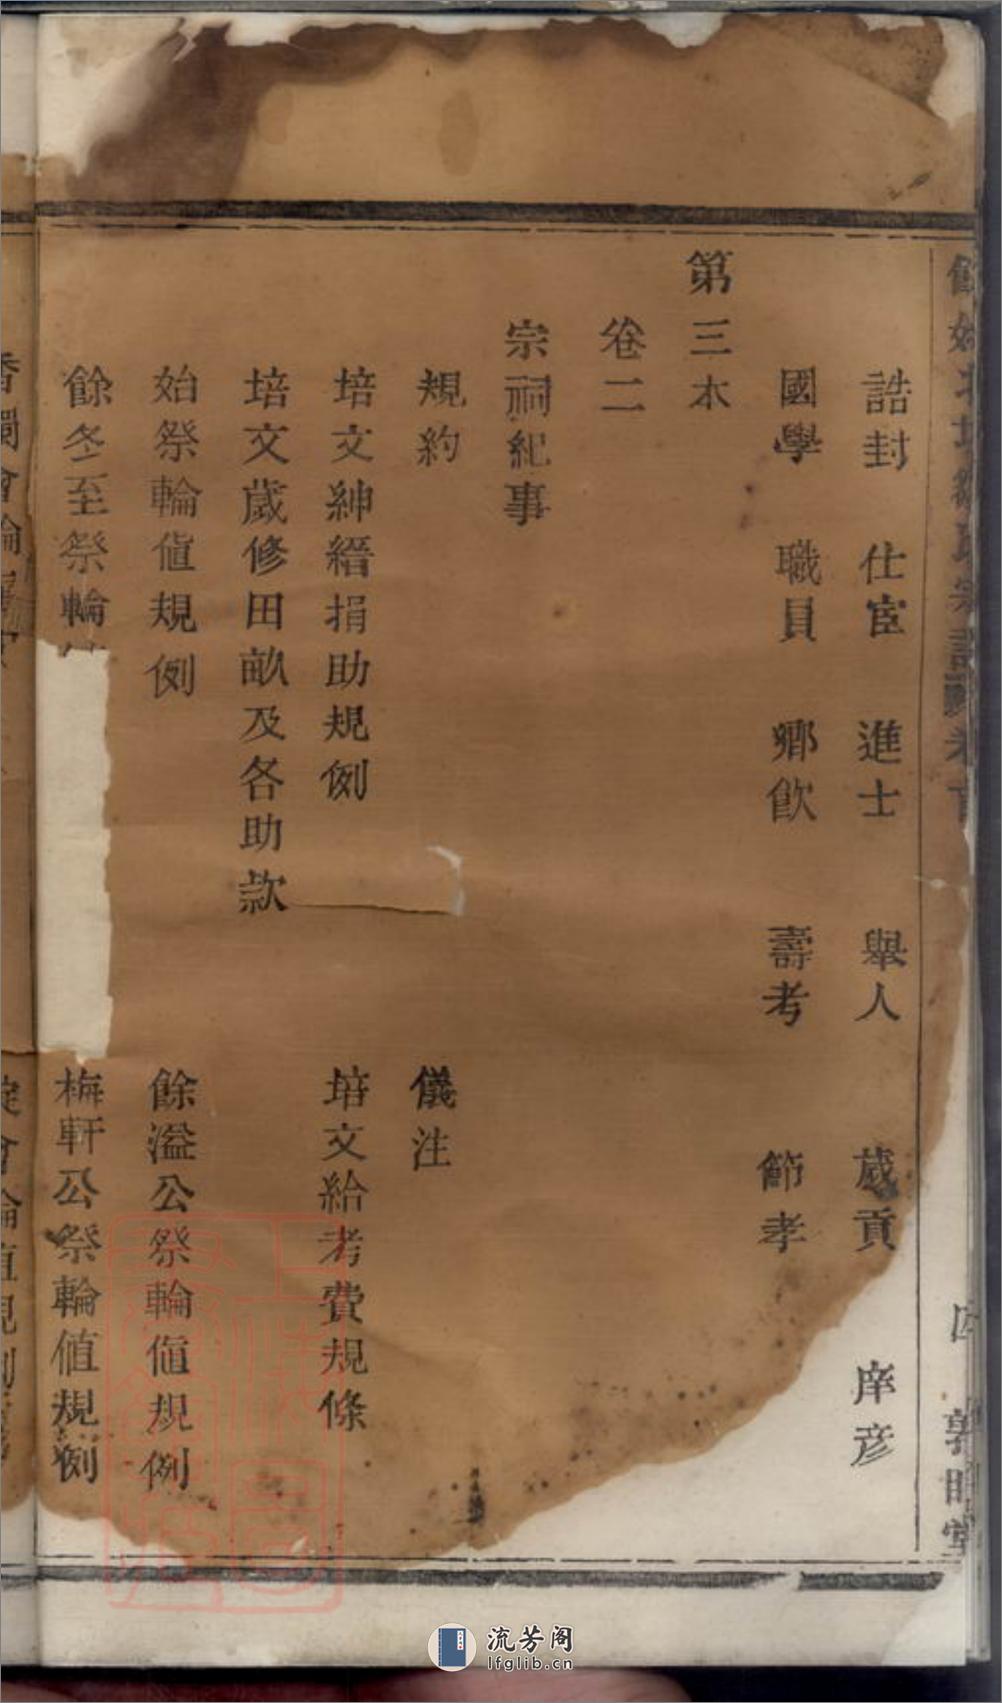 誥封 仕宦 進士 舉人 歲貢 庠彥
國學 職員 鄉飲 壽考 節孝
第三本
卷二
宗祠紀事
規約 儀注
培文紳縉捐助規例 培文給考費規條
培文歲修田畝及各助款
始祭輪值規例 餘溢公祭輪值規例
餘冬至祭輪 梅軒公祭輪值規例
流芳阁
lfglib.cn